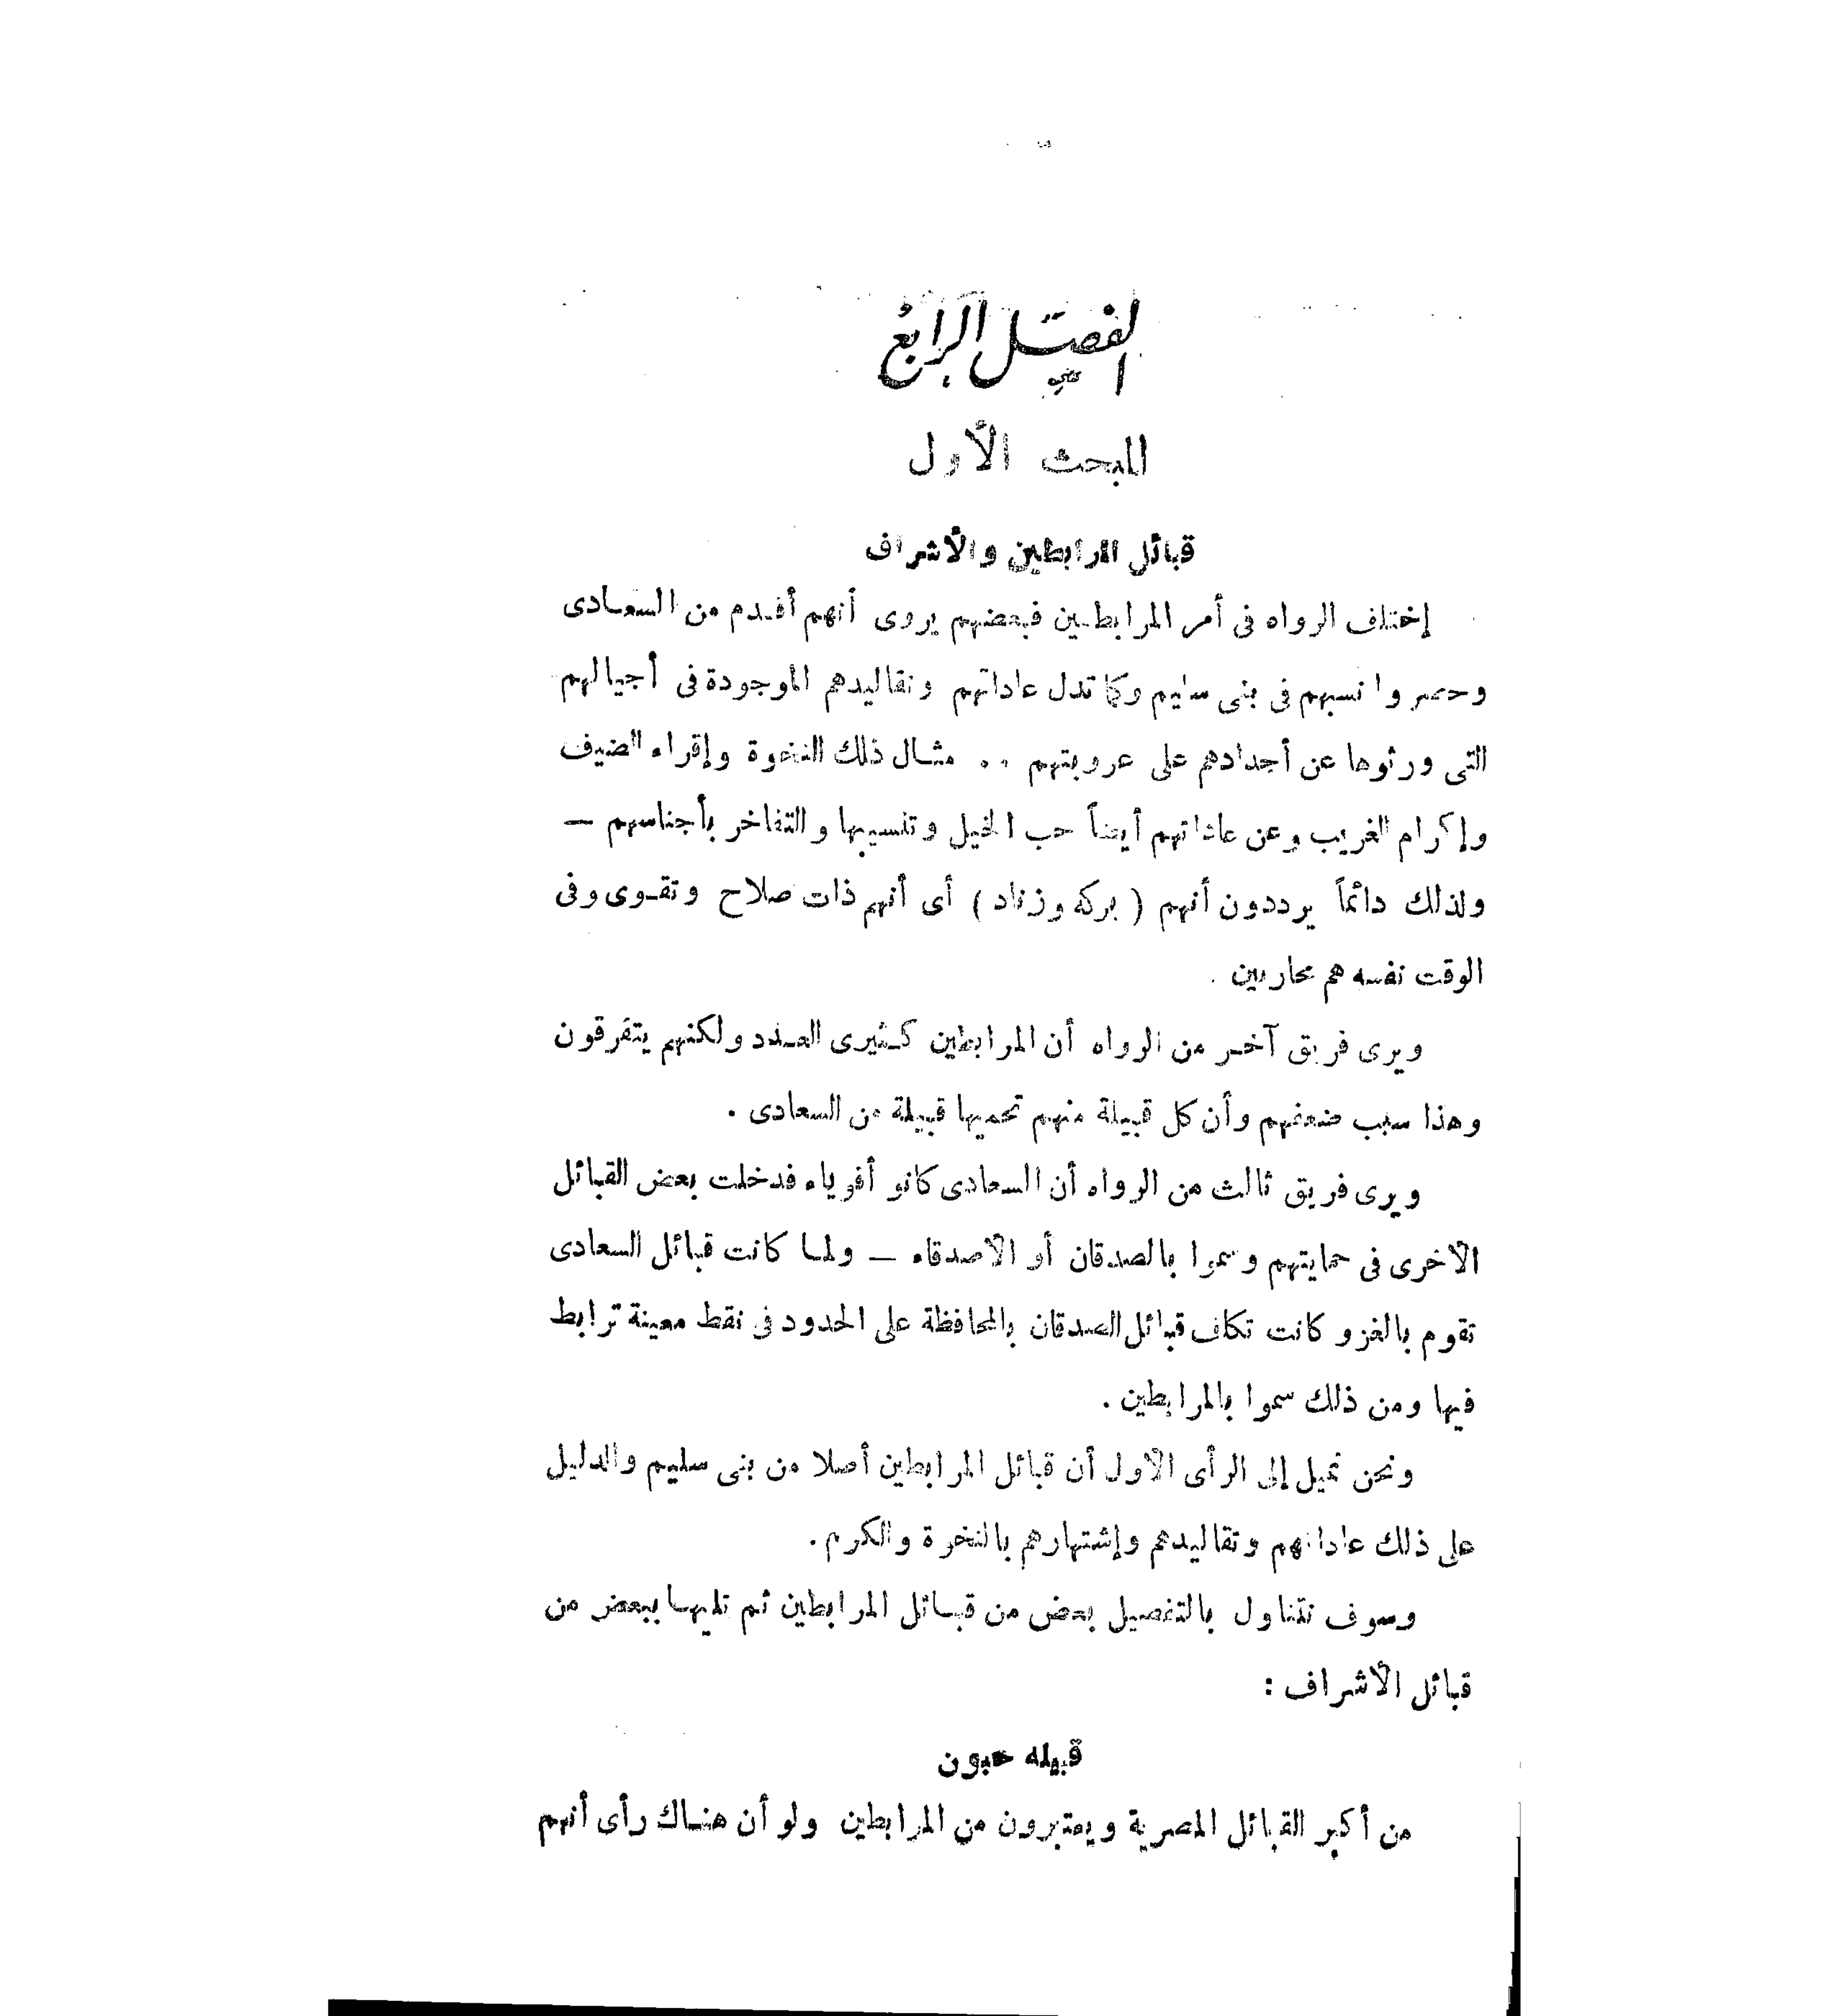 الفصل الرابع
المبحث الأول
قبائل المرابطين والأشراف
إختلف الرواه فى أمر المرابطين فبعضهم يروى أنهم أقدم من السعادى
وحصروا نسبهم فى بنى سليم وكما تدل عاداتهم وتقاليدهم الموجودة فى أجيالهم
التى ورثوها عن أجدادهم على عروبتهم .. مثال ذلك النخوة وإقراء الضيف
وإكرام الغريب وعن عاداتهم أيضاً حب الخيل وتنسيبها والتفاخر بأجناسهم —
ولذلك دائماً يرددون أنهم ( بركه وزناد ) أى أنهم ذات صلاح وتقوى وفى
الوقت نفسه هم محاربين .
ويرى فريق آخر من الرواه أن المرابطين كثيرى العدد ولكنهم يتفرقون
وهذا سبب ضعفهم وأن كل قبيلة منهم تحميها قبيلة من السعادى .
ويرى فريق ثالث من الرواه أن السعادى كانو أقوياء فدخلت بعض القبائل
الأخرى فى حمايتهم وسموا بالصدقان أو الأصدقاء — ولما كانت قبائل السعادى
تقوم بالغزو كانت تكلف قبائل الصدقان بالمحافظة على الحدود فى نقط معينة ترابط
فيها ومن ذلك سموا بالمرابطين .
ونحن نميل إلى الرأى الأول أن قبائل المرابطين أصلا من بنى سليم والدليل
على ذلك عاداتهم وتقاليدهم وإشتهارهم بالنخوة والكرم .
وسوف نتناول بالتفصيل بعض من قبائل المرابطين ثم تليها ببعض من
قبائل الأشراف :
قبيله حبون
من أكبر القبائل المصرية ويعتبرون من المرابطين ولو أن هناك رأى أنهم